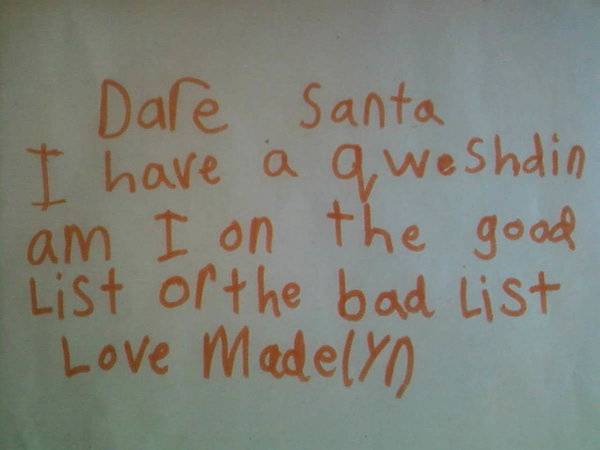 Dare Santa
I have a qweshdin
am I on the good
List or the bad List
Love Madelyn